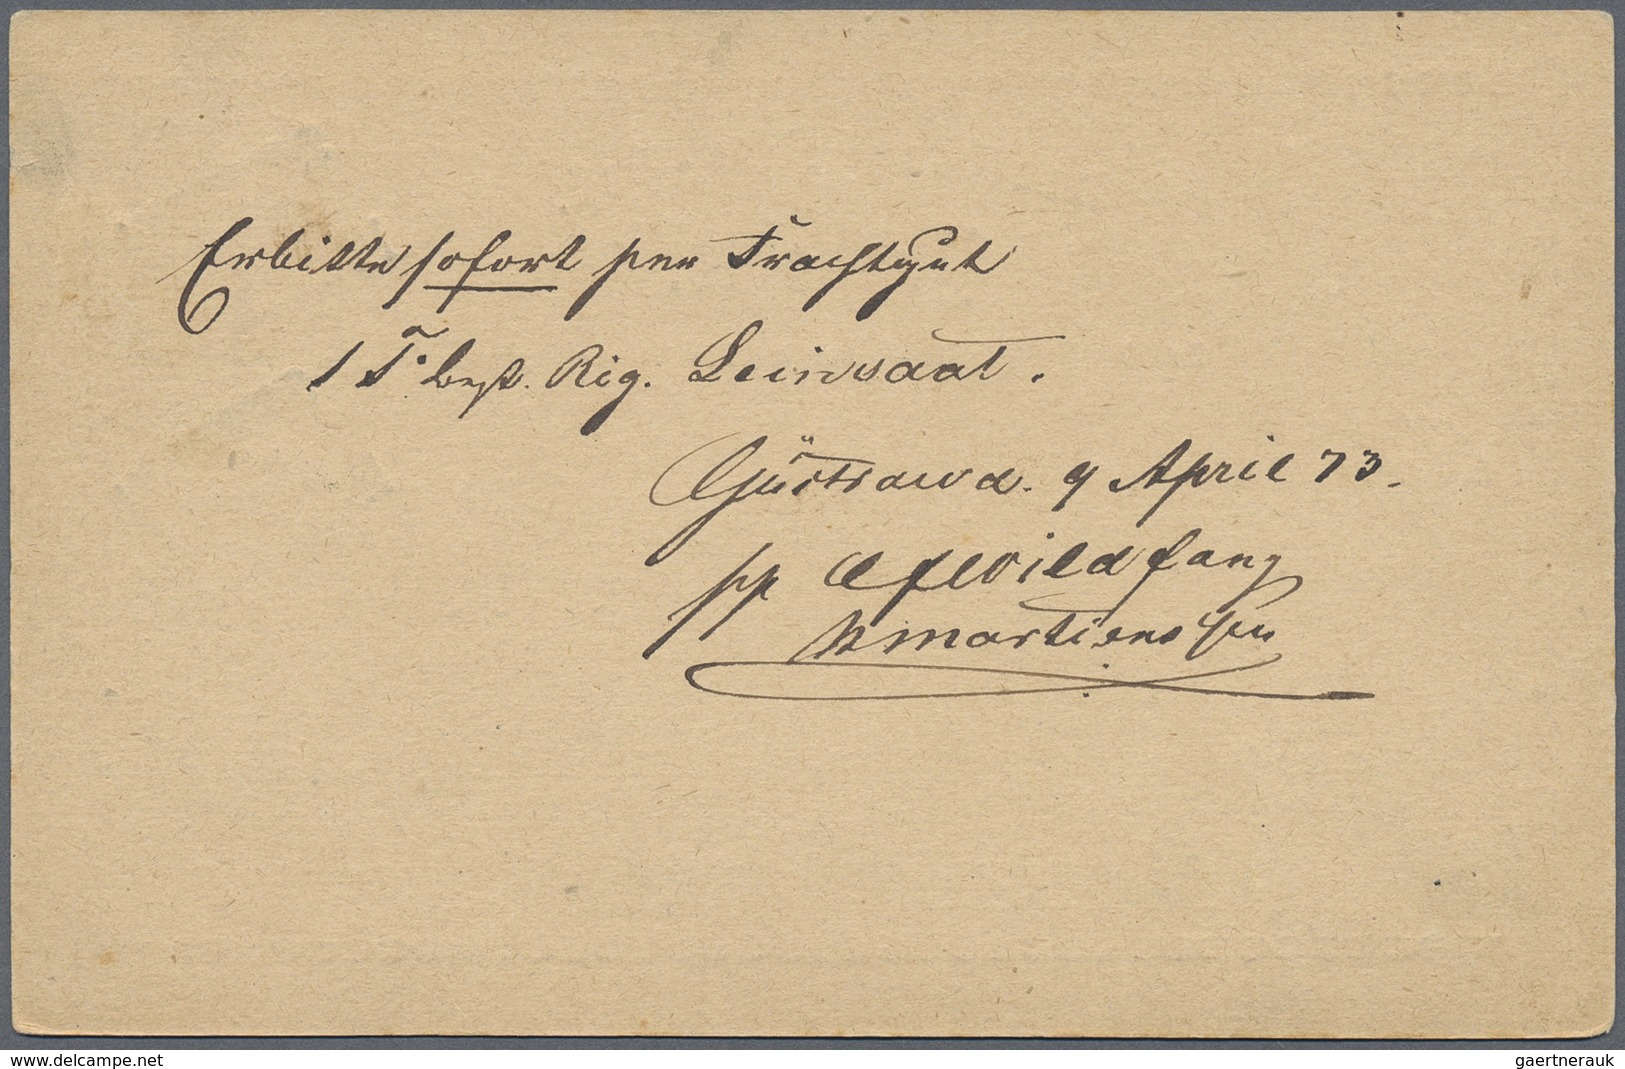 Erbitte sofort per Frachtgut
1 T. best. Rig. Leinsaat.
Güstrow d. 9 April 73.
pp Wildfang
Martienssen
delcampe.net
gaertnerauk